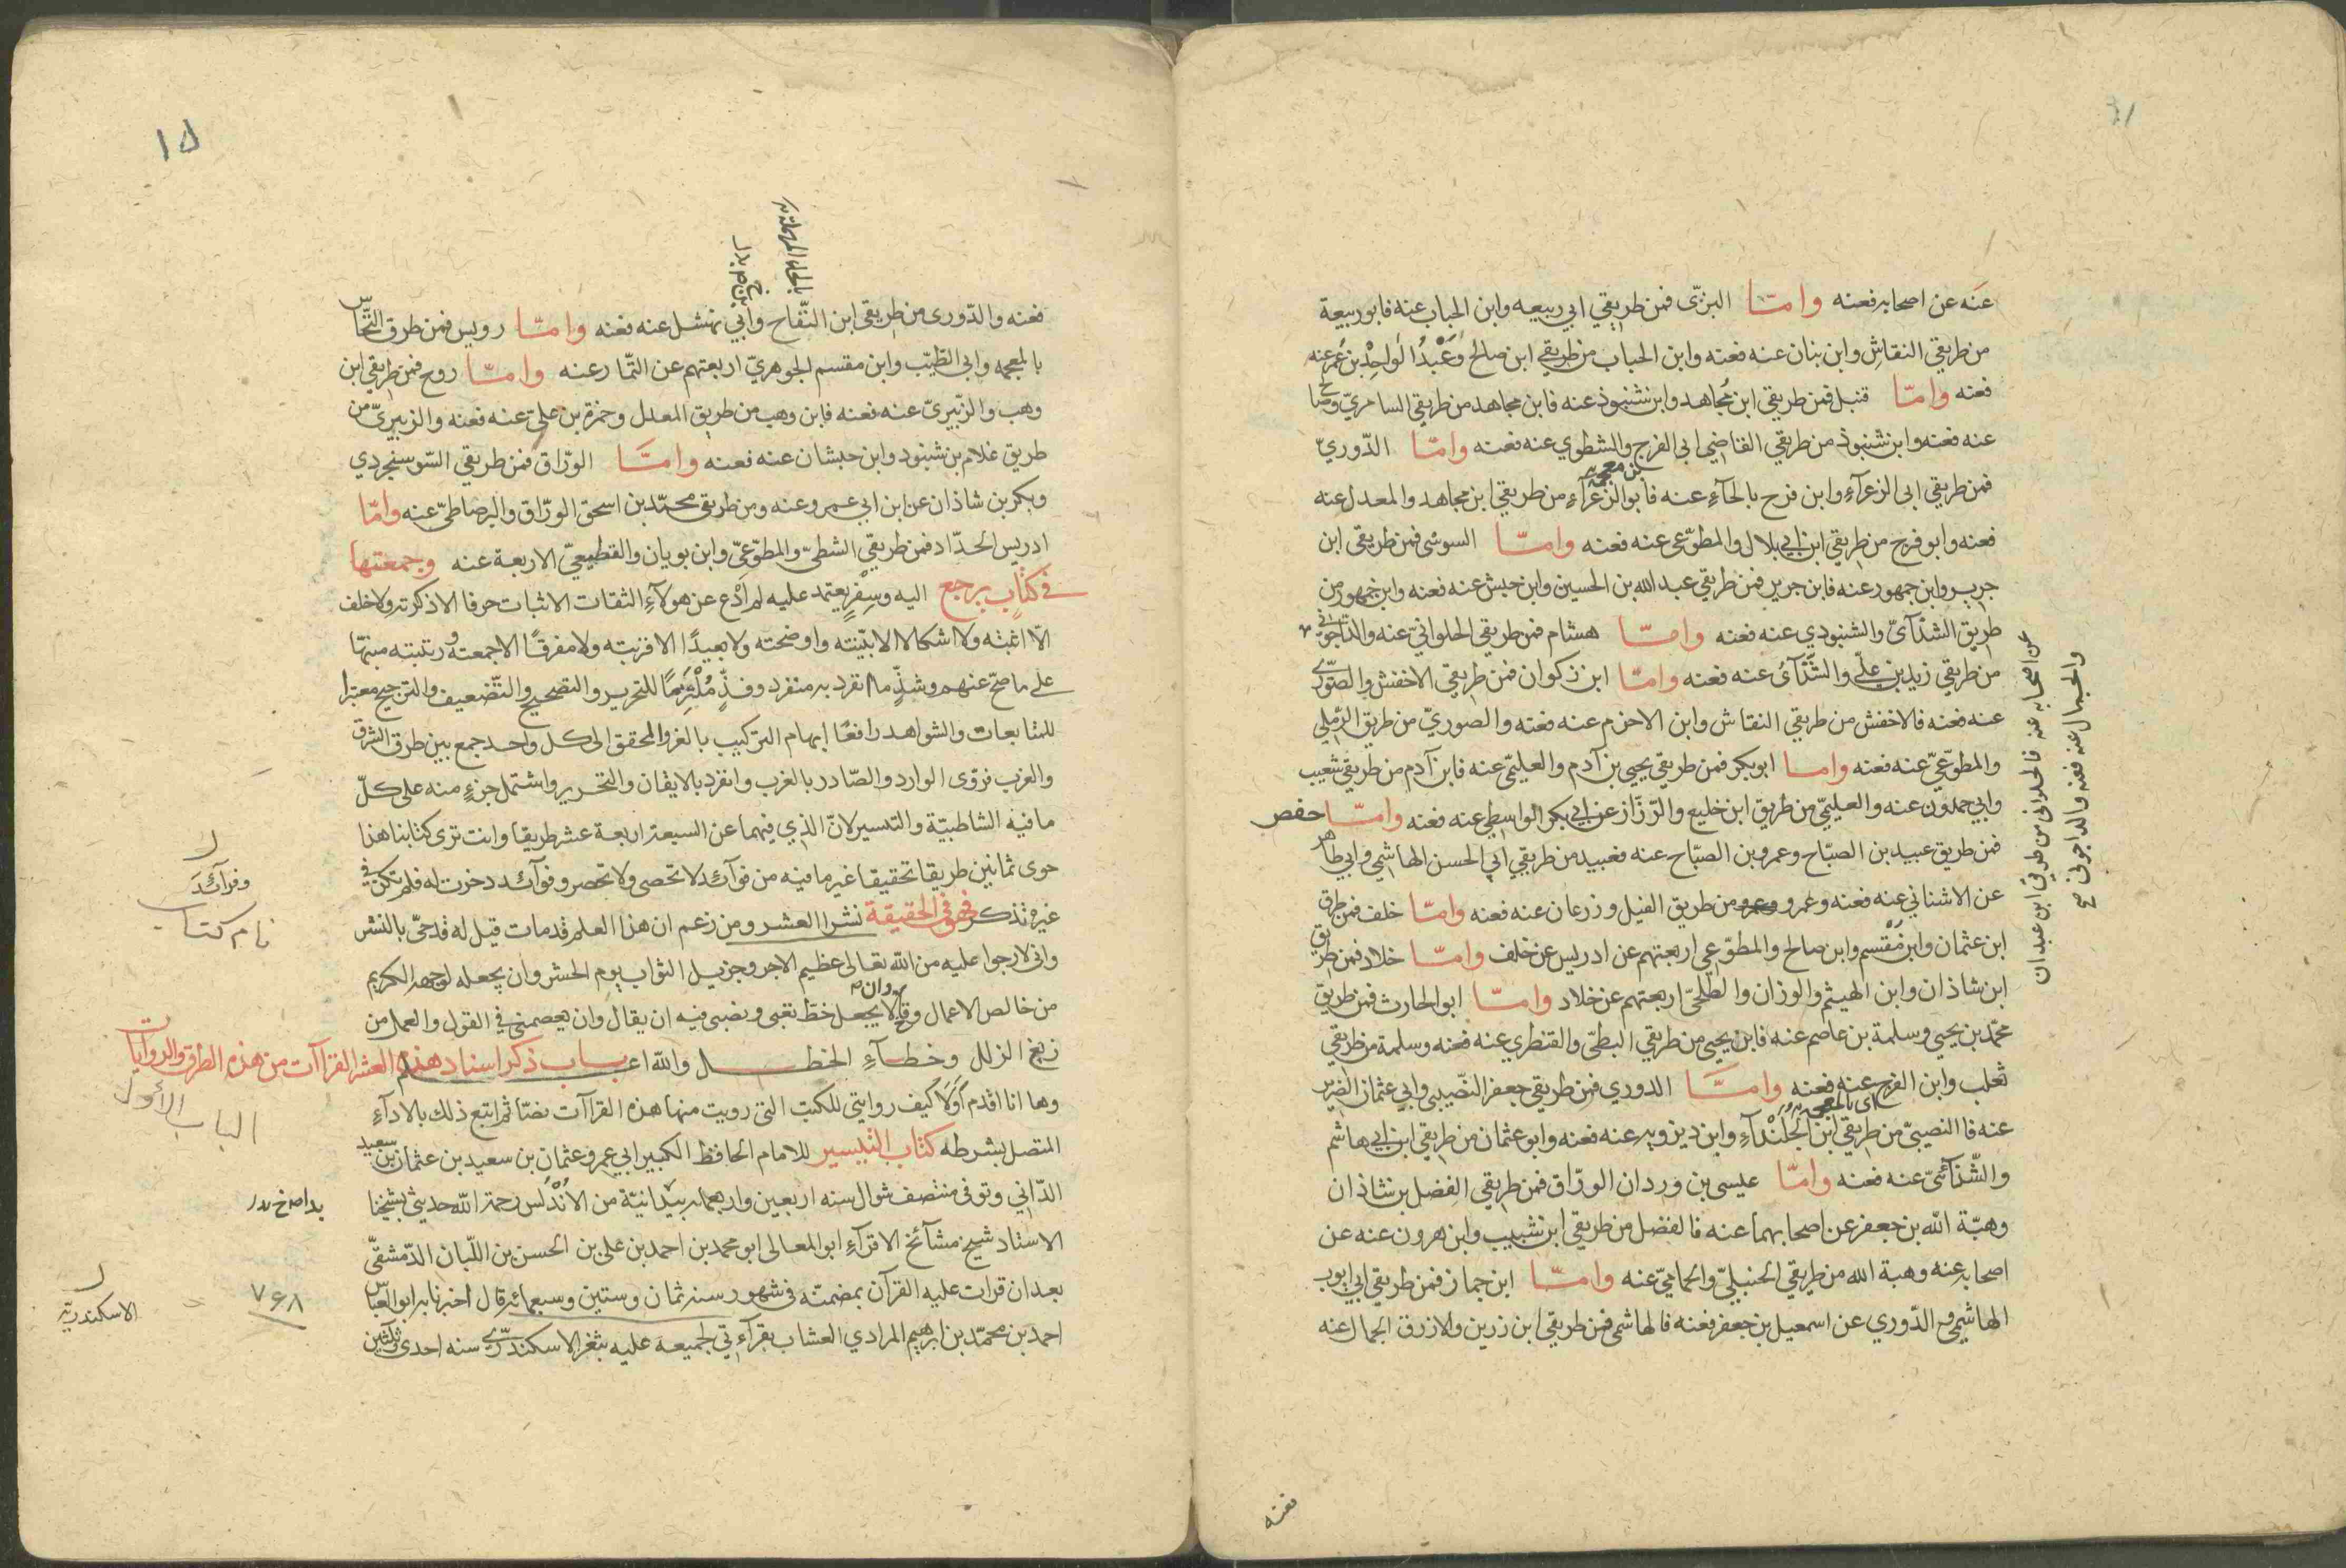 عنه عن اصحابه فعنه وامّا البزّى فمن طريقي ابي ربيعه وابن الحباب عنه فابوربيعة
من طريقي النقاش وابن بنان عنه فعنه وابن الحباب من طريقي ابن صالح وعبد الواحد بن عمر عنه
فعنه وامّا قنبل فمن طريقي ابن مجاهد وابن شنبوذ عنه فابن مجاهد من طريقي السامريّ وصالح
عنه فعنه وابن شنبوذ من طريقي القاضي ابى الفرج والشطوي عنه فعنه وامّا الدّوريّ
فمن طريقي ابى الزعرآءِ وابن فرح بالحآءِ عنه فابو الزعرآءِ من طريقي ابن مجاهد والمعدل عنه
فعنه وابو فرح من طريقي ابن ابي بلال والمطوّعى عنه فعنه وامّا السوسى فمن طريقى ابن
جرير وابن جمهور عنه فابن جرير فمن طريقي عبد الله بن الحسين وابن حبش عنه فعنه وابن جمهور من
طريق الشذآئىّ والشنبوذي عنه فعنه وامّا هشام فمن طريقي الحلوانىّ عنه والداجونى
من طريقي زيد بن علّى والشذآئى عنه فعنه وامّا ابن زكوان فمن طريقي الاخفش والصّورى
عنه فعنه فالاخفش من طريقي النقاش وابن الاحزم عنه فعنه والصوريّ من طريق الرّملي
والمطوّعيّ عنه فعنه واما ابوبكر فمن طريقي يحيى بن آدم والعليمّى عنه فابن آدم من طريقي شعيب
وابي حمدون عنه والعليميّ من طريق ابن خليع والرّزّاز عن ابي بكر الواسطي عنه فعنه وامّا حفص
فمن طريق عبيد بن الصبّاح وعمرو بن الصبّاح عنه فعبيد من طريقي ابي الحسن الهاشمي وابي طاهر
عن الاشناني عنه فعنه وعمرو من طريق الفيل وزرعان عنه فعنه وامّا خلف فمن طرق
ابن عثمان وابن مقسم وابن صالح والمطوّعى اربعتهم عن ادريس عن خلف وامّا خلاد فمن طريق
ابن شاذان وابن الهيثم والوزان والطلحىّ اربعتهم عن خلاد وامّا ابوالحارث فمن طريق
محمّد بن يحيى وسلمة بن عاصم عنه فابن يحيى من طريقي البطىّ والقنطري عنه فعنه وسلمة من طريقي
ثعلب وابن الفرج عنه فعنه وامّا الدوري فمن طريقي جعفر النّصيبى وابي عثمان الضرير
عنه فاالنصيبىّ من طريقي ابن الجلندآءِ وابن ديزويه عنه فعنه وابوعثمان من طريقي ابن ابي هاشم
والشّذآئىّ عنه فعنه وامّا عيسى بن وردان الورّاق فمن طريقي الفضل بن شاذان
وهبّة الله بن جعفر عن اصحابهما عنه فالفضل من طريقي ابن شبيب وابن هرون عنه عن
اصحابه عنه وهبة الله من طريقي الحنبلىّ والحمامىّ عنه وامّا ابن جماز فمن طريقي ابي ايوب
الهاشمي والدّوري عن اسمعيل بن جعفر فعنه فالهاشمى فمن طريقي ابن زرين والازرق الجمال عنه
عن اصحابه عنه فالحلوانى من طريقي ابن عبدان
والجمال عنه فعنه والداجونى
فعنه
١٥
بالحاء المهملة
فعنه والدّورى من طريقى ابن النّفاح وابي نهشل عنه فعنه وامّا رويس فمن طرق النّخاس
بالمعجمه وابى الطيّب وابن مقسم الجوهريّ اربعتهم عن التمّار عنه وامّا روح فمن طريقي ابن
وهب والزّبيريّ عنه فعنه فابن وهب من طريق المعدل وحمزة بن علىّ عنه فعنه والزبيرىّ من
طريق غلام بن شنبود وابن حبشان عنه فعنه وامّا الورّاق فمن طريقي السّوسنجردي
وبكر بن شاذان عن ابن ابي عمرو عنه ومن طريقى محمّد بن اسحق الورّاق والبرصاطىّ عنه وامّا
ادريس الحدّاد فمن طريقي الشطىّ والمطوّعىّ وابن بويان والقطيعىّ الاربعة عنه وجمعتها
في كتاب يرجع اليه وسِفرٍ يعتمد عليه لم ادع عن هولآءِ الثقات الاثبات حرفا الا ذكرته ولاخلف
الّا اثبته ولا اشكالا الا بيّنته واوضحته ولا بعيدًا الا قربته ولا مفرقًا الا جمعته ورتبته منبّها
على ما صحّ عنهم وشذّ ما انفرد به منفرد وفذّ مُلْتزمًا للتحرير والتصحيح والتّضعيف والترجيح معتبرا
للمتابعات والشواهد رافعًا ابهام التركيب بالعزو المحقق الى كل واحد جمع بين طرق الشرق
والغرب فروى الوارد والصّادر بالغرب وانفرد بالاتقان والتحرير واشتمل جزءٍ منه على كلّ
ما فيه الشاطبيّة والتيسير لانّ الذي فيهما عن السبعة اربعة عشر طريقا وانت ترى كتابنا هذا
حوى ثمانين طريقا تحقيقا غير ما فيه من فوآئد لا تحصى ولا تحصر وفوآئد دخرت له فلم تكن في
غيره تذكر فهو في الحقيقة نشرا العشر ومن زعم ان هذا العلم قد مات قيل له قد حىّ بالنشر
وانى لارجوا عليه من الله تعالى عظيم الاجر وجزيل الثواب يوم الحشر وان يجعله لوجهه الكريم
من خالص الاعمال وان لا يجعل حظ تعبى ونصبى فيه ان يقال وان يعصمنى في القول والعمل من
زيغ الزلل وخطآءِ الخطل والله اعلم باب ذكر اسناد هذه العشر القراآت من هذه الطرق والروايات
وها انا اقدم اوّلا كيف روايتى للكتب التى رويت منها هذه القراآت نصّا ثم اتبع ذلك بالادآءِ
المتصل بشرطه كتاب التيسير للامام الحافظ الكبير ابي عمرو عثمان بن سعيد بن عثمان بن سعيد
الدّانى وتوفى منتصف شوال سنه اربعين واربعمايه بدانيّة من الاندلس رحمة الله حدثنى بشيخنا
الاستاد شيخ مشآئخ الاقرآءِ ابوالمعالى ابو محمد بن احمد بن على بن الحسن بن اللّبان الدّمشقىّ
بعد ان قرات عليه القرآن بمضمنه فى شهور سنه ثمان وستين وسبعمائه قال اخبرنا به ابوالعبّاس
احمد بن محمّد بن ابرهيم المرادي العشاب بقرآءتي لجميعه عليه بثغر الاسكندرّى سنه احدى وثلثين
وفرآئد
نام كتاب
الباب الأول
٧۶٨
الاسكندريّة